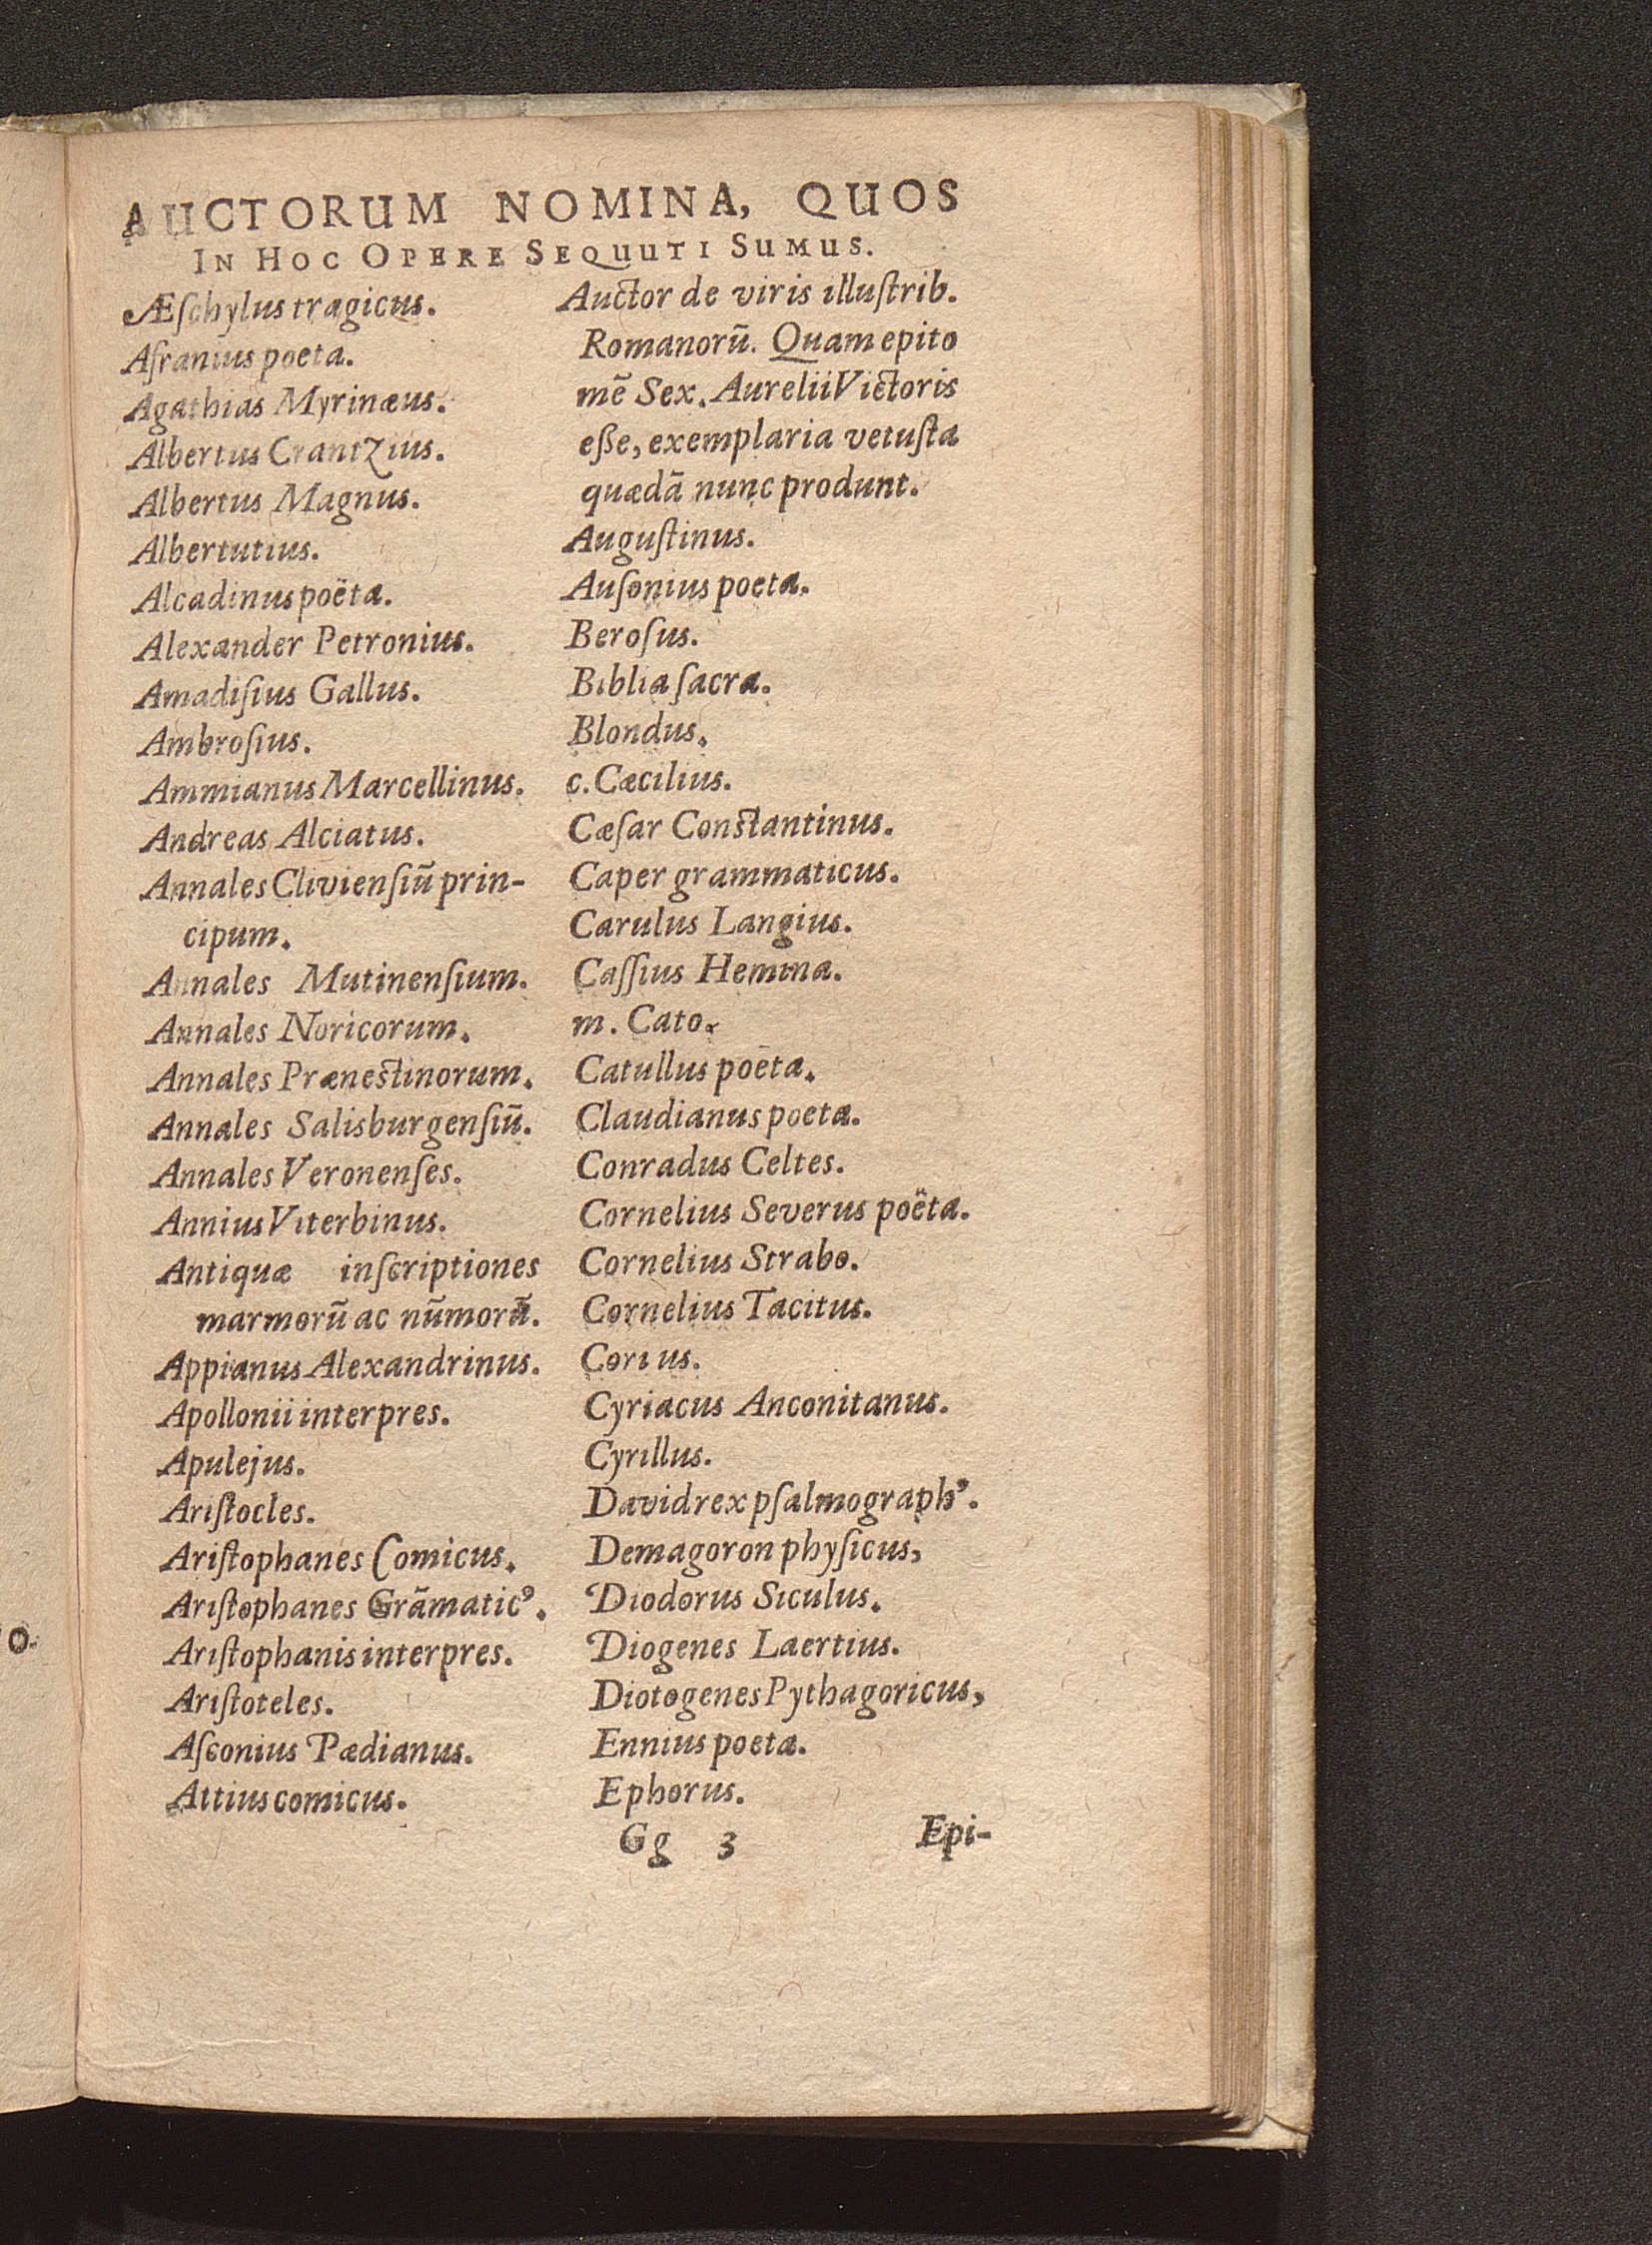 AUCTORUM NOMINA, QUOS
IN HOC OPERE SEQUUTI SUMUS.
Æſchylus tragicus.
Afranius poeta.
Agathias Myrinæus.
Albertus Crantzius.
Albertus Magnus.
Albertutius.
Alcadinus poëta.
Alexander Petronius.
Amadiſius Gallus.
Ambroſius.
Ammianus Marcellinus.
Andreas Alciatus.
Annales Clivienſiū prin-
cipum.
Annales Mutinenſium.
Annales Noricorum.
Annales Prænestinorum.
Annales Salisburgenſiū.
Annales Veronenſes.
Annius Viterbinus.
Antiquæ inſcriptiones
marmorū ac nūmorū.
Appianus Alexandrinus.
Apollonii interpres.
Apulejus.
Ariſtocles.
Ariſtophanes Comicus.
Ariſtophanes Grāmaticꝰ.
Ariſtophanis interpres.
Ariſtoteles.
Aſconius Pædianus.
Attius comicus.
Auctor de viris illuſtrib.
Romanorū. Quam epito
mē Sex. Aurelii Victoris
eße, exemplaria vetuſta
quædā nunc produnt.
Auguſtinus.
Auſonius poeta.
Beroſus.
Biblia ſacra.
Blondus.
c. Cæcilius.
Cæſar Constantinus.
Caper grammaticus.
Carulus Langius.
Caſſius Hemina.
m. Cato.
Catullus poëta.
Claudianus poeta.
Conradus Celtes.
Cornelius Severus poëta.
Cornelius Strabo.
Cornelius Tacitus.
Corius.
Cyriacus Anconitanus.
Cyrillus.
David rex pſalmographꝰ.
Demagoron phyſicus,
Diodorus Siculus.
Diogenes Laertius.
Diotogenes Pythagoricus,
Ennius poeta.
Ephorus.
Gg 3 Epi-